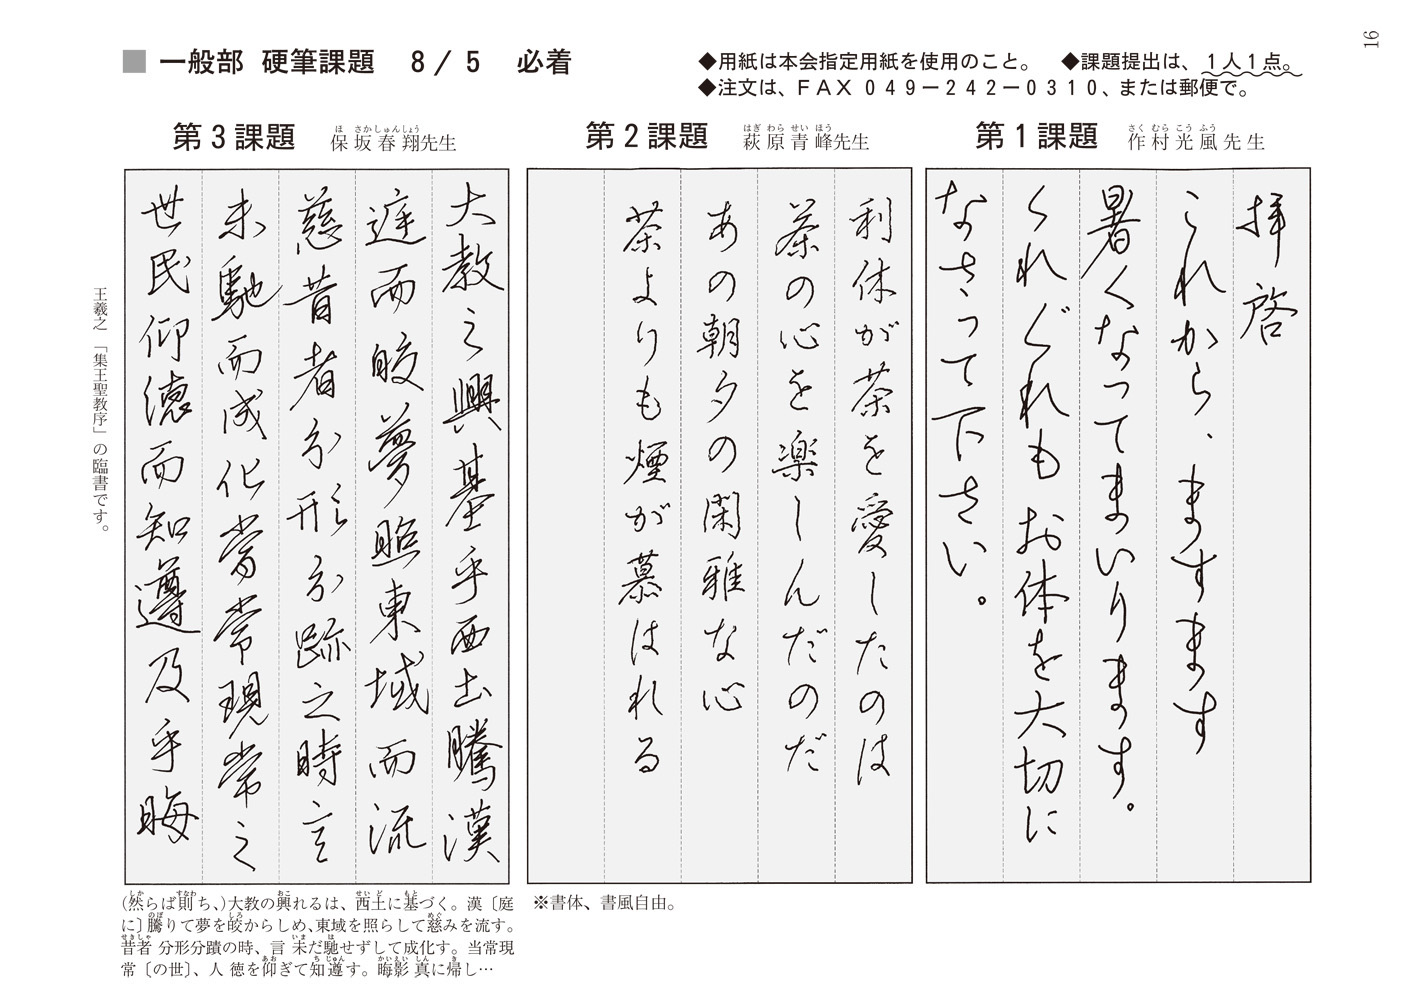 16
■ 一般部 硬筆課題 8/5 必着
◆用紙は本会指定用紙を使用のこと。 ◆課題提出は、1人1点。
◆注文は、FAX 049-242-0310、または郵便で。
第1課題 作村光風先生
さくむらこうふう
拝啓
これから、ますます
暑くなってまいります。
くれぐれもお体を大切に
なさって下さい。
第2課題 萩原青峰先生
はぎわらせいほう
利休が茶を愛したのは
茶の心を楽しんだのだ
あの朝夕の閑雅な心
茶よりも煙が慕はれる
※書体、書風自由。
第3課題 保坂春翔先生
ほさかしゅんしょう
大教之興基乎西土騰漢
庭而皎夢照東域而流
慈昔者分形分跡之時言
未馳而成化當常現常之
世民仰徳而知遵及乎晦
王羲之「集王聖教序」の臨書です。
(然らば則ち、)大教の興れるは、西土に基づく。漢〔庭
に〕騰りて夢を皎からしめ、東域を照らして慈みを流す。
昔者 分形分蹟の時、言 未だ馳せずして成化す。当常現
常〔の世〕、人 徳を仰ぎて知遵す。晦影 真に帰し…